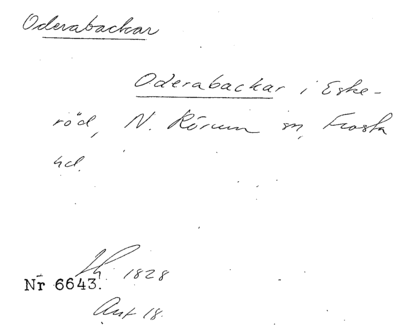 Oderabackar
Oderabackar i Eske-
röd, N. Rörum sn, Frosta
hd.
Lh. 1828
Nr 6643.
Ant 18.